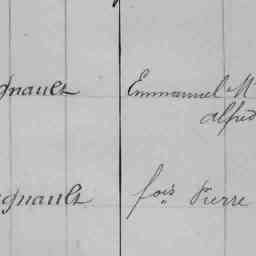 gnault Emmanuel M
alfred
gnault fois Pierre